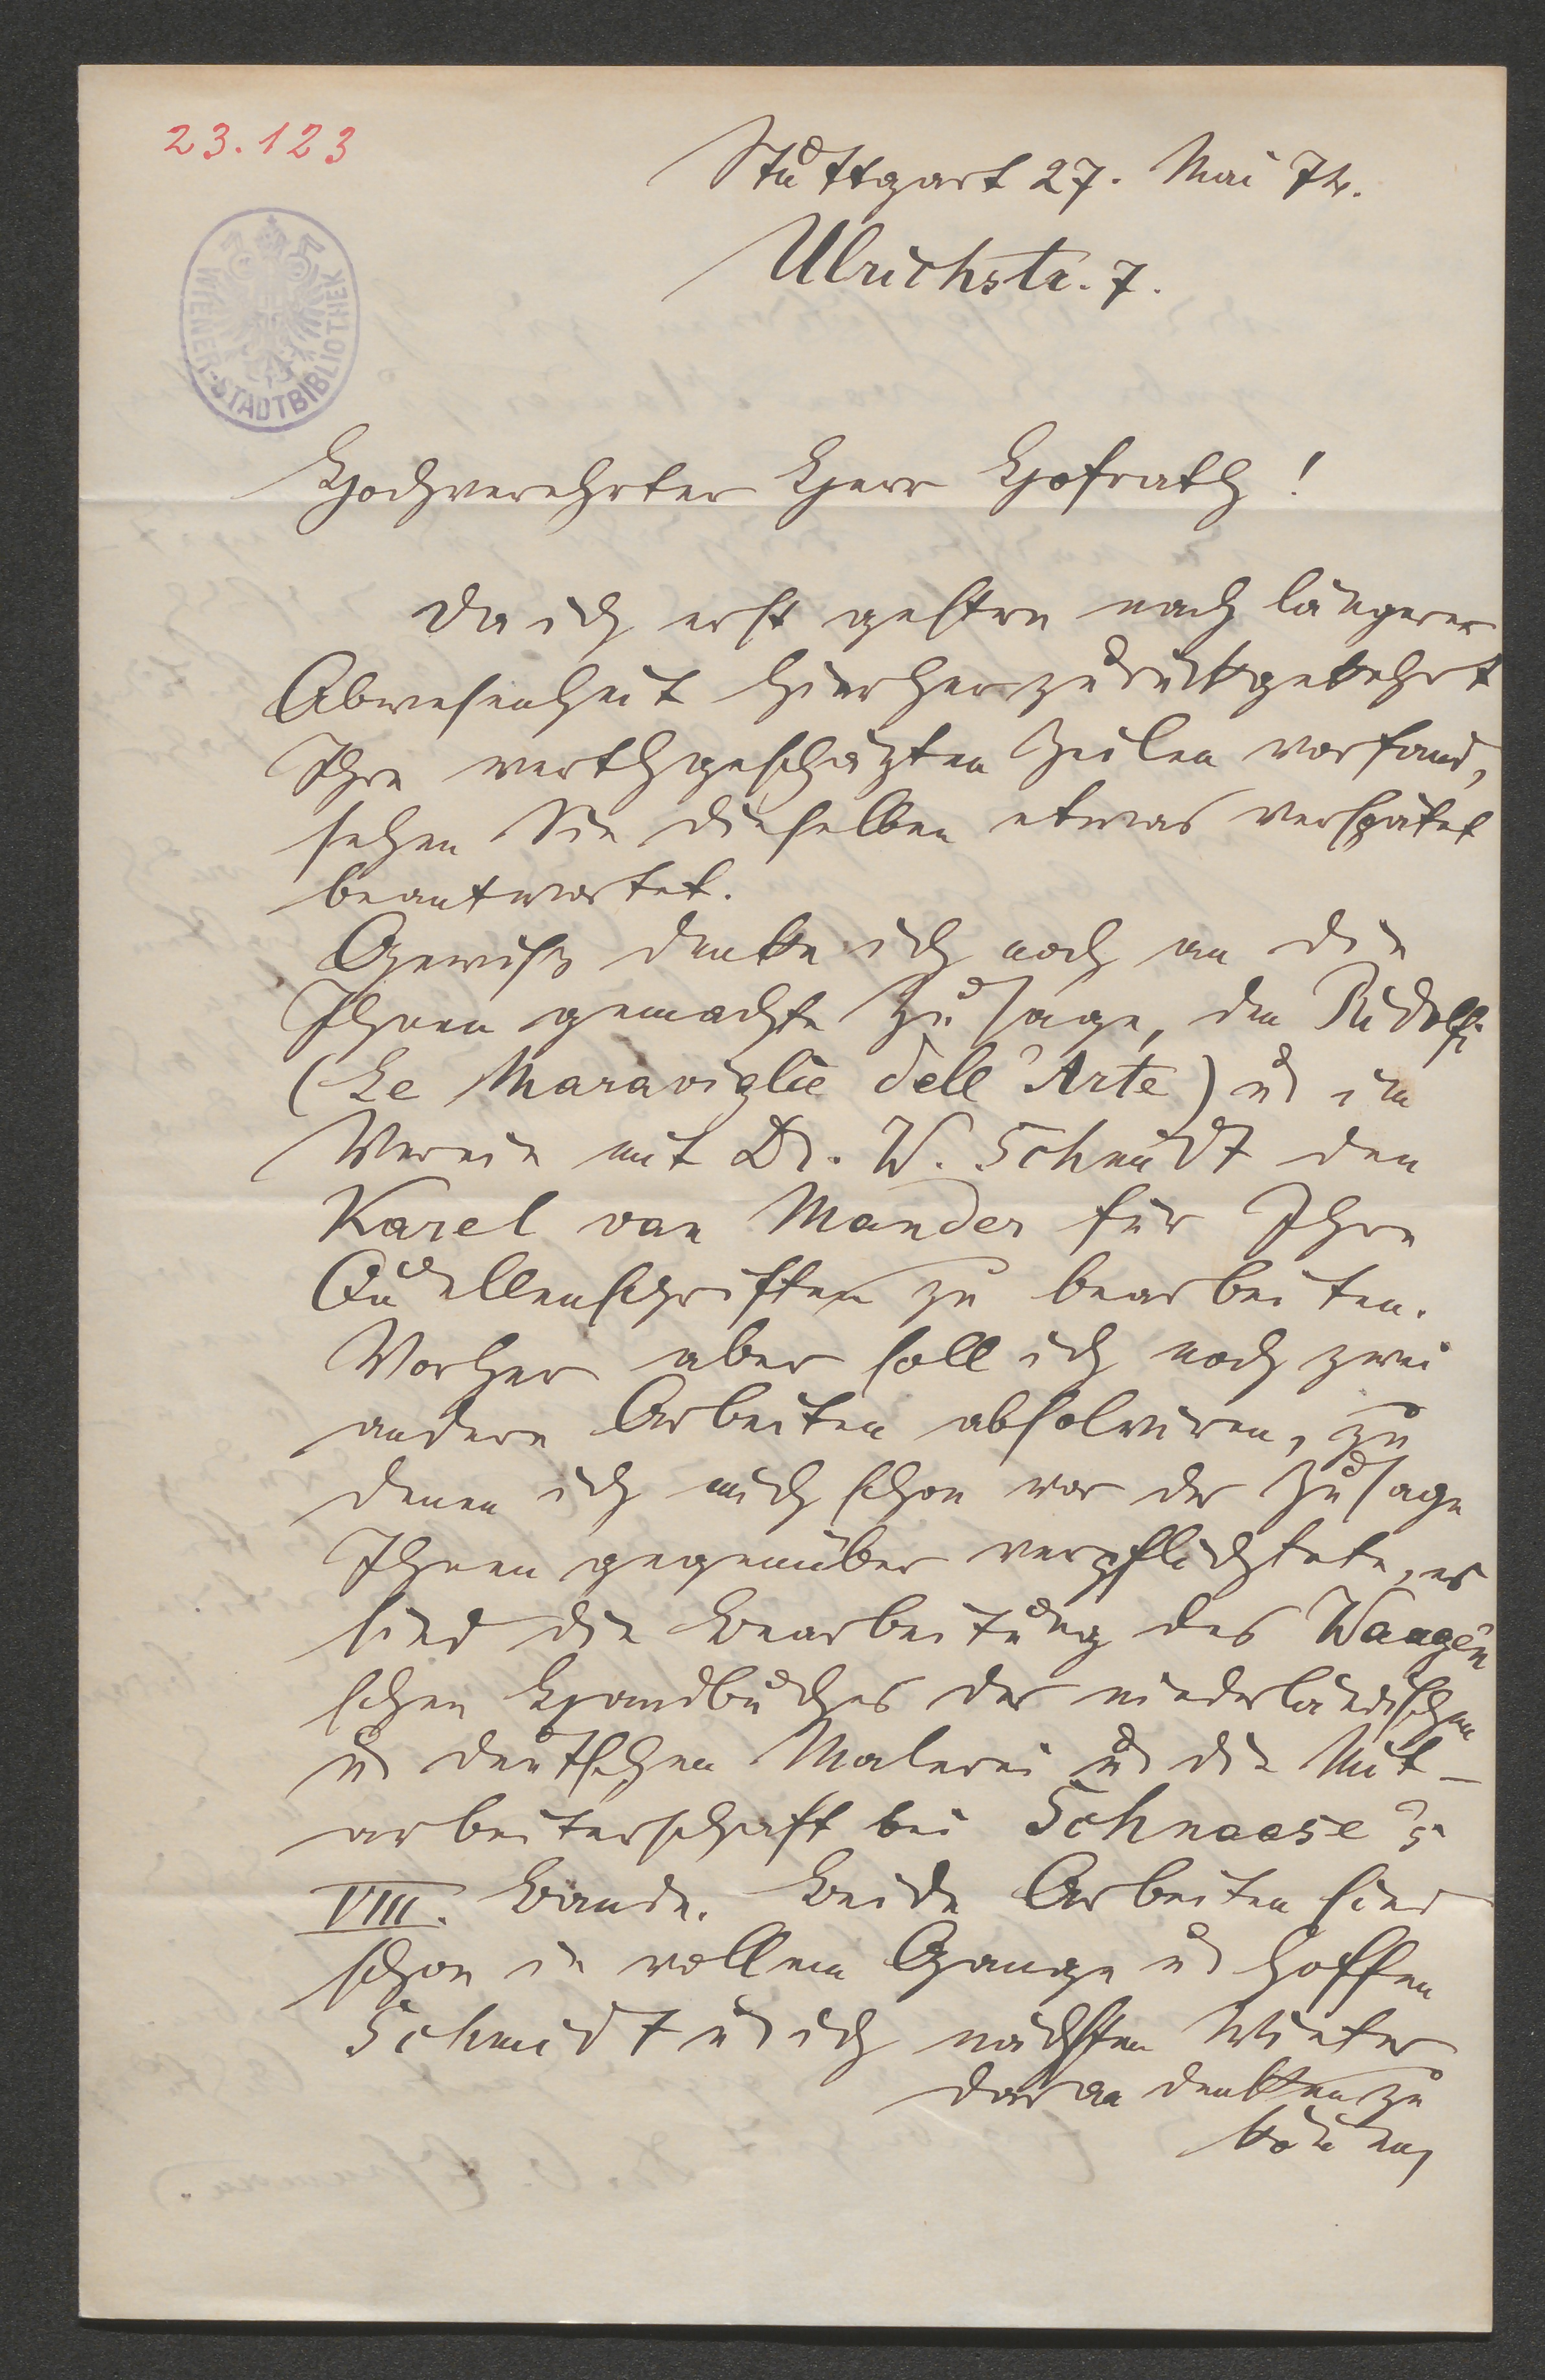 23.123
Stuttgart 27. Mai 74.
Ulrichstr. 7.
WIENER-STADTBIBLIOTHEK
Hochverehrter Herr Hofrath!
Da ich erst gestern nach längerer
Abwesenheit hierher zurückgekehrt
Ihre werthgeschäzten Zeilen vorfand,
sehen Sie dieselben etwas verspätet
beantwortet.
Gewiß denke ich noch an die
Ihnen gemachte Zusage, den Ridolfi
(Le Maraviglie dell'Arte) u im
Verein mit Dr. W. Schmidt den
Karel van Mander für Ihre
Quellenschriften zu bearbeiten.
Vorher aber soll ich noch zwei
andere Arbeiten absolviren, zu
denen ich mich schon vor der Zusage
Ihnen gegenüber verpflichtete, es
sind die Bearbeitung des Waagen
schen Handbuches der niederländischen
u deutschen Malerei u die Mit-
arbeiterschaft bei Schnaase's
VIII. Bande. Beide Arbeiten sind
schon in vollem Gange u hoffen
Schmidt u ich nächsten Winter
daran denken zu
können,